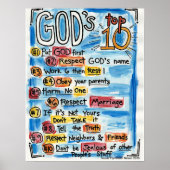 GOD's top 10
#1) Put GOD first
#2) Respect GOD's name
#3) Work & then Rest
#4) Obey your parents
#5) Harm No One
#6) Respect Marriage
#7) If it's Not Yours
Don't TAKE it
#8) Tell the Truth
#9) Respect Neighbors & Friends
#10) Don't be Jealous of other
People's Stuff